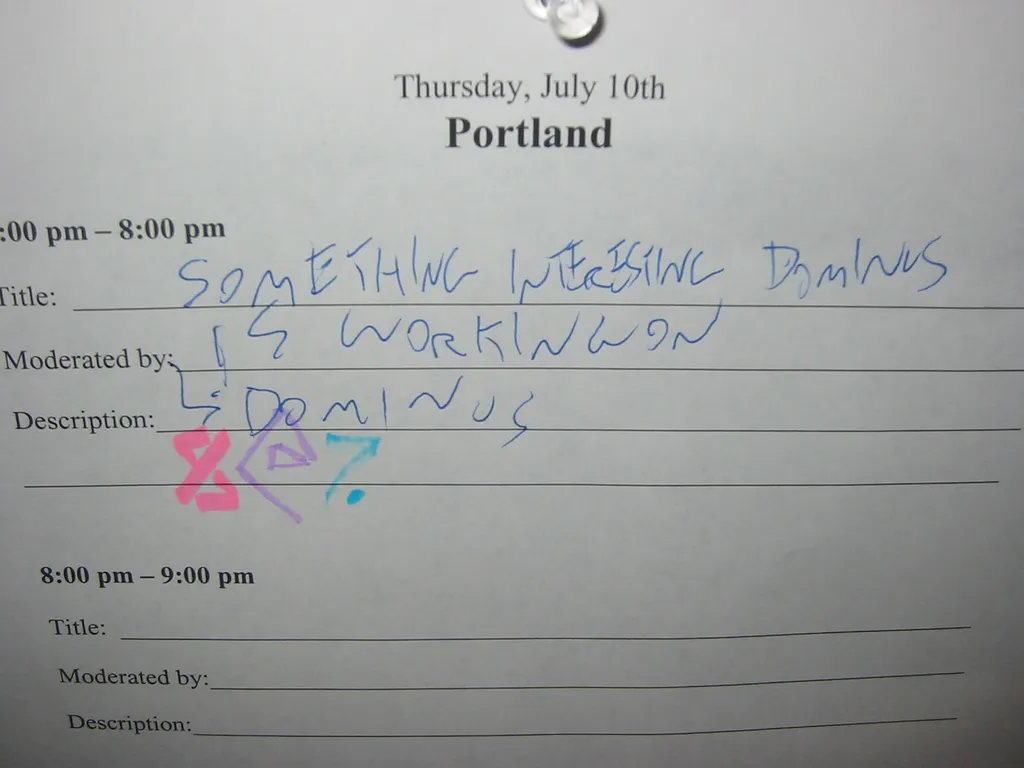 Thursday, July 10th
Portland
:00 pm – 8:00 pm
Title: SOMETHING INTERESTING DOMINUS
IS WORKING ON
Moderated by:
Description: DOMINUS
8:00 pm – 9:00 pm
Title:
Moderated by:
Description: